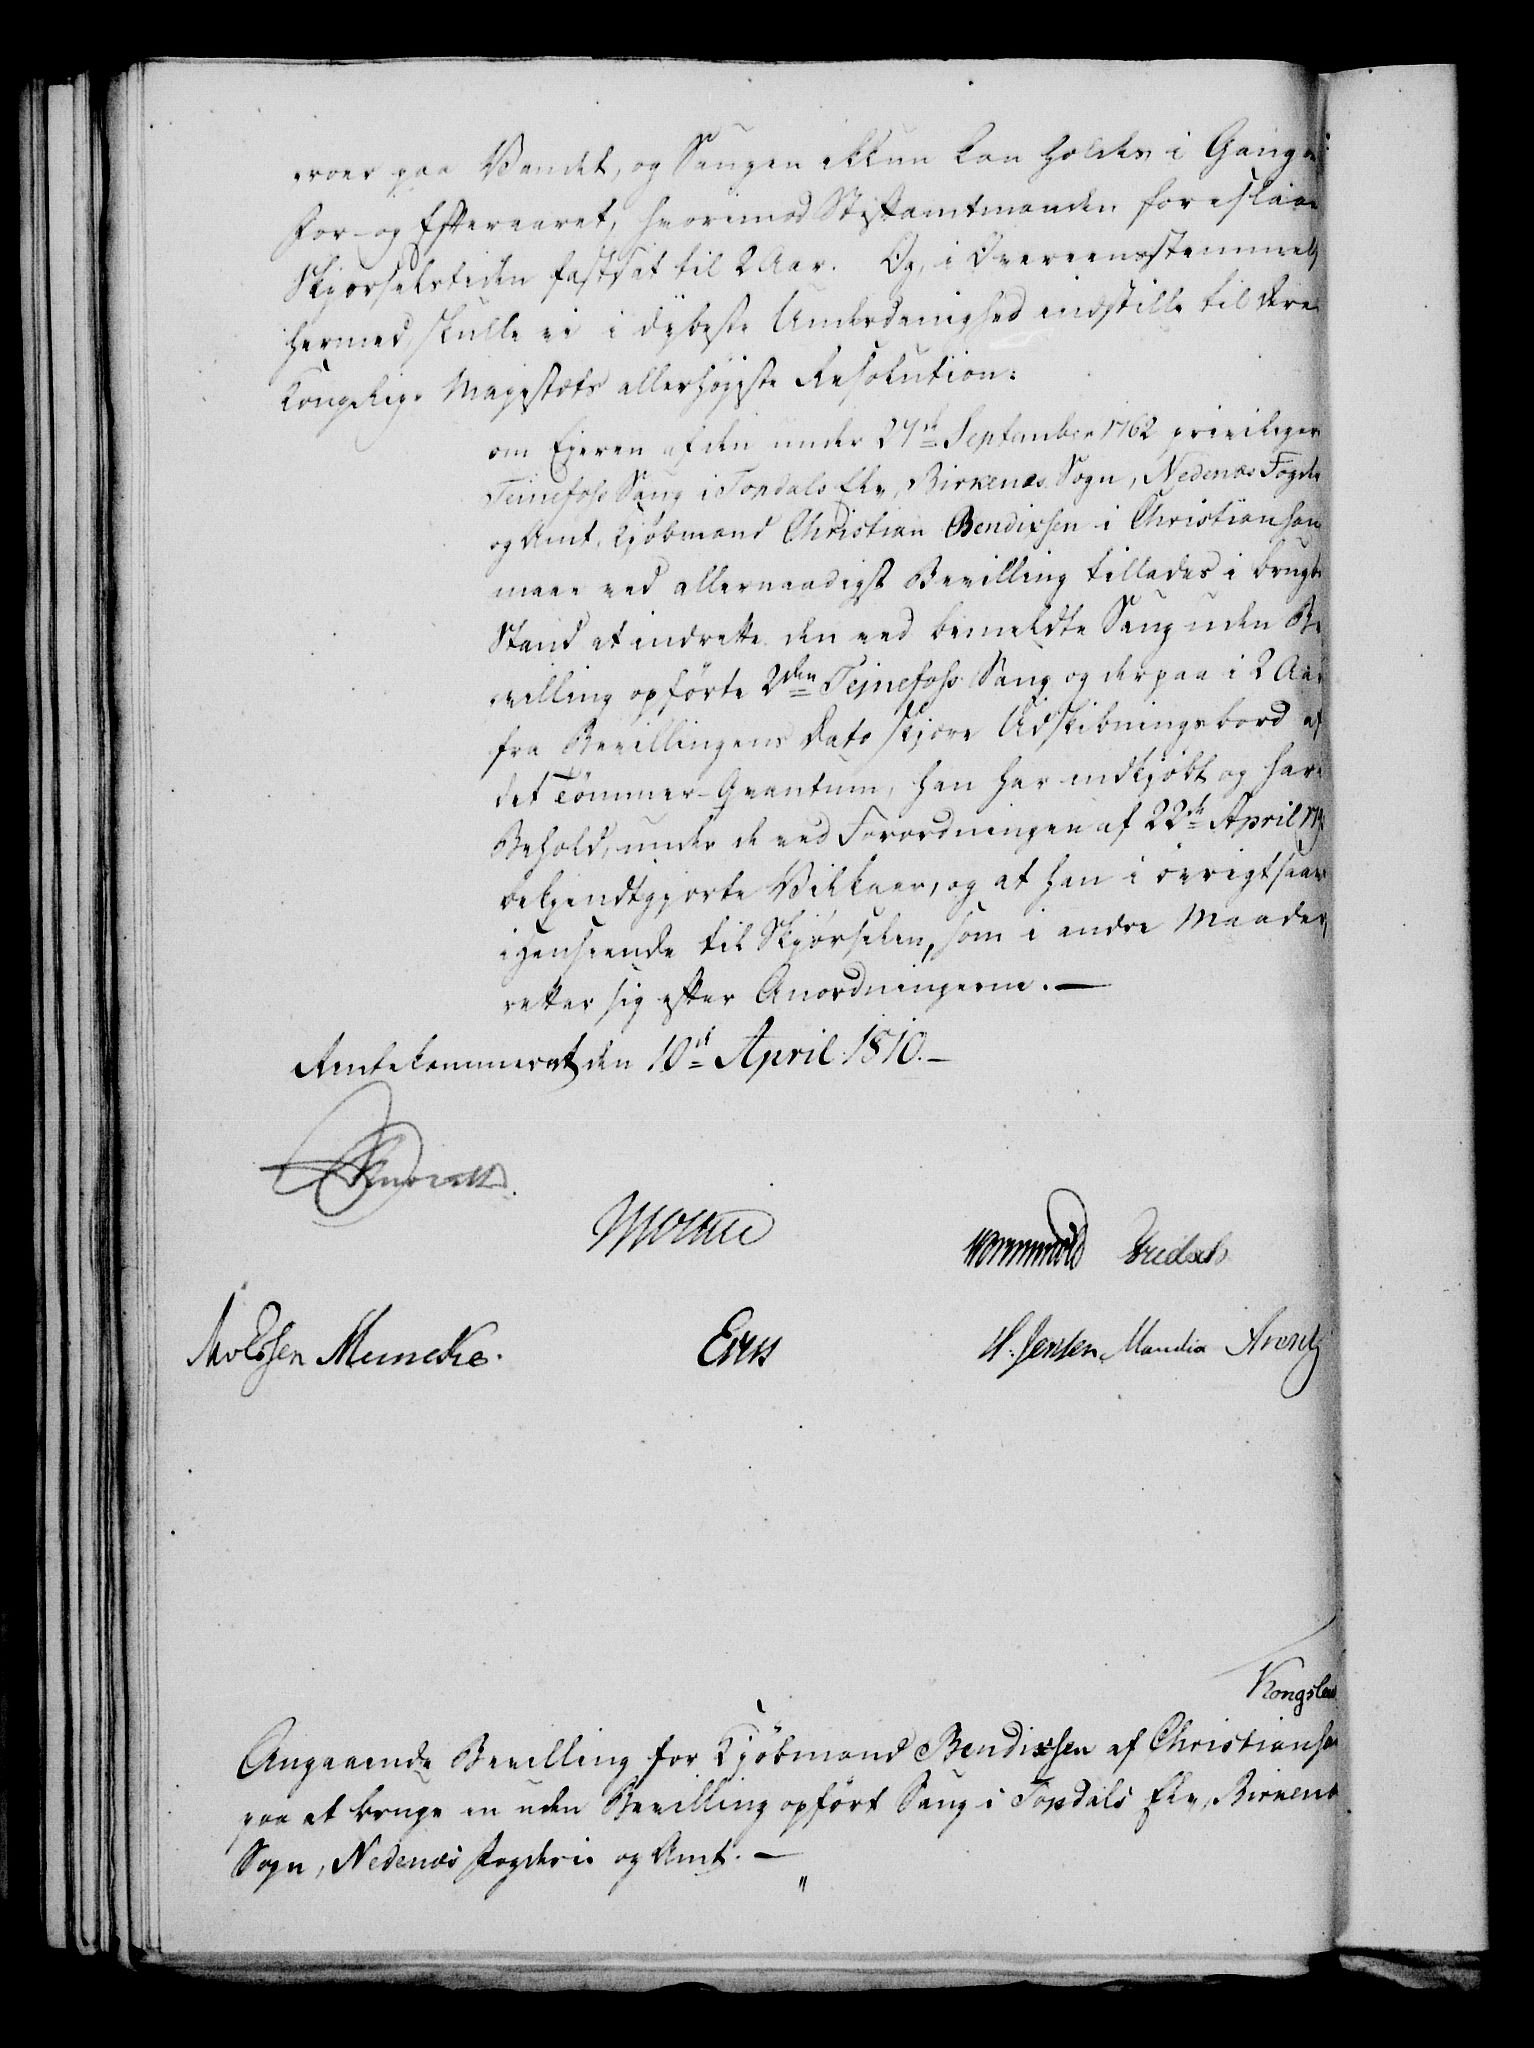 eroer paa Vandet, og Saugen ekkun kan holdes i Gang om
For- og Efteraaret, hvorimod Stiftamtmanden foreslaaer
Skjørselstiden fastsat til 2 Aar. Og, i Overeensstemmelse
hermed, skulle vi i dybeste Underdanighed indstille til Deres
Kongelige Majestæts allerhøjeste Resolution:
om Eieren af den under 27de September 1762 privileger
Teinefoss Saug i Topdals Elv, Birkenæs Sogn, Nedenæs Fogderi
og Amt, Kjøbmand Christian Bendixsen i Christiansan
maae ved allernaadigst Bevilling tillades i brugbar
Stand at indrette den ved bemeldte Saug uden Be
villing opførte 2den Tejnefoss Saug og derpaa i 2 Aar
fra Bevillingens Dato skjære Udskibningsbord af
det Tømmer-Qvantum, han har indkjøbt og har i
Behold, under de ved Forordningen af 22de April 17
bekjendtgjorte Vilkaar, og at han i øvrigt saavel
i Henseende til Skjørselen, som i andre Maader,
retter sig efter Anordningerne. —
Rentekammeret den 10de April 1810. —
Knuth
Wormskiold
Moldsen Meinecke.
H. Jensen Mandix Arentz
Kongsleu
Angaaende Bevilling for Kjøbmand Bendixsen af Christiansan
paa at bruge en uden Bevilling opført Saug i Topdals Elv, Birkenæs
Sogn, Nedenæs Fogderie og Amt. —